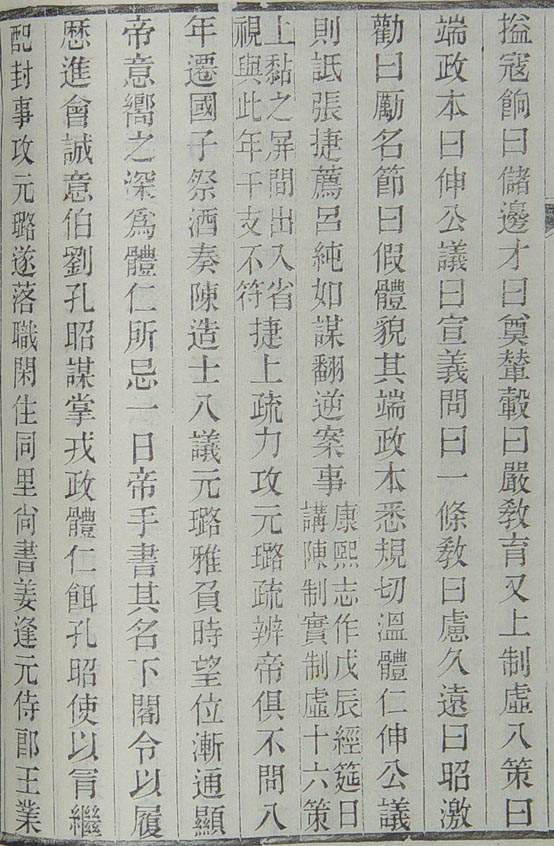 搤寇餉曰儲邊才曰奠輦轂曰嚴敎育又上制虛八策曰
端政本曰伸公議曰宣義問曰一條敎曰慮久遠曰昭激
勸曰勵名節曰假體貌其端政本悉規切溫體仁伸公議
則詆張捷薦呂純如謀翻逆案事康熙志作戊辰經筵日講陳制實制虛十六策
上黏之屏間出入省視與此年干支不符捷上疏力攻元璐疏辨帝俱不問八
年遷國子祭酒奏陳造士八議元璐雅負時望位漸通顯
帝意嚮之深爲體仁所忌一日帝手書其名下閣令以履
歷進會誠意伯劉孔昭謀掌戎政體仁餌孔昭使以冐繼
配封事攻元璐遂落職閑住同里尙書姜逢元侍郎王業